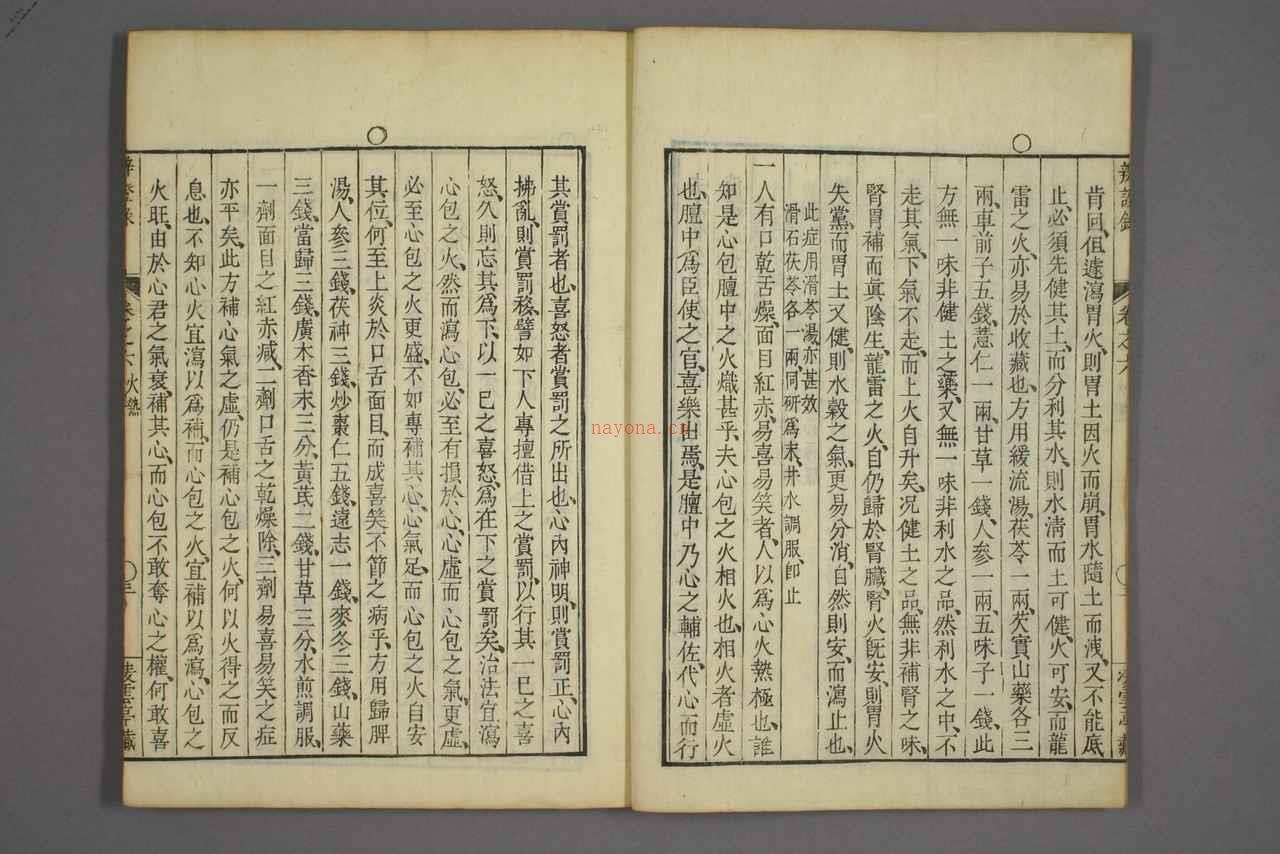 辨證錄 卷之六
肯回、但遽瀉胃火、則胃土因火而崩、胃水隨土而洩、又不能底
止、必須先健其土、而分利其水、則水清而土可健、火可安、而龍
雷之火、亦易於收藏也、方用緩流湯、茯苓一兩、芡實山藥各三
兩、車前子五錢、薏仁一兩、甘草一錢、人參一兩、五味子一錢、此
方無一味非健土之藥、又無一味非利水之品、然利水之中、不
走其氣、下氣不走、而上火自升矣、况健土之品、無非補腎之味、
腎胃補而眞陰生、龍雷之火、自仍歸於腎臟、腎火旣安、則胃火
失黨、而胃土又健、則水穀之氣、更易分消、自然則安、而瀉止也、
此症用滑苓湯、亦甚效
滑石茯苓各一兩、同研爲末、井水調服、卽止
一人有口乾舌燥、面目紅赤、易喜易笑者、人以爲心火熱極也、誰
知是心包膻中之火熾甚乎、夫心包之火相火也、相火者虛火
也、膻中爲臣使之官、喜樂出焉、是膻中乃心之輔佐、代心而行
其賞罰者也、喜怒者賞罰之所出也、心內神明、則賞罰正、心內
拂亂、則賞罰移、譬如下人專擅借上之賞罰、以行其一已之喜
怒、久則忘其爲下、以一已之喜怒、爲在下之賞罰矣、治法宜瀉
心包之火、然而瀉心包、必至有損於心、心虛而心包之氣、更虛、
必至心包之火更盛、不如專補其心、心氣足、而心包之火自安
其位、何至上炎於口舌面目、而成喜笑不節之病乎、方用歸脾
湯、人參三錢、茯神三錢、炒棗仁五錢、遠志一錢、麥冬三錢、山藥
三錢、當歸三錢、廣木香末三分、黃芪二錢、甘草三分、水煎調服、
一劑面目之紅赤减、二劑口舌之乾燥除、三劑易喜易笑之症
亦平矣、此方補心氣之虛、仍是補心包之火、何以火得之而反
息也、不知心火宜瀉以爲補、而心包之火、宜補以爲瀉、心包之
火旺、由於心君之氣衰、補其心、而心包不敢奪心之權、何敢喜
卷之六 火熱
nayona.cn